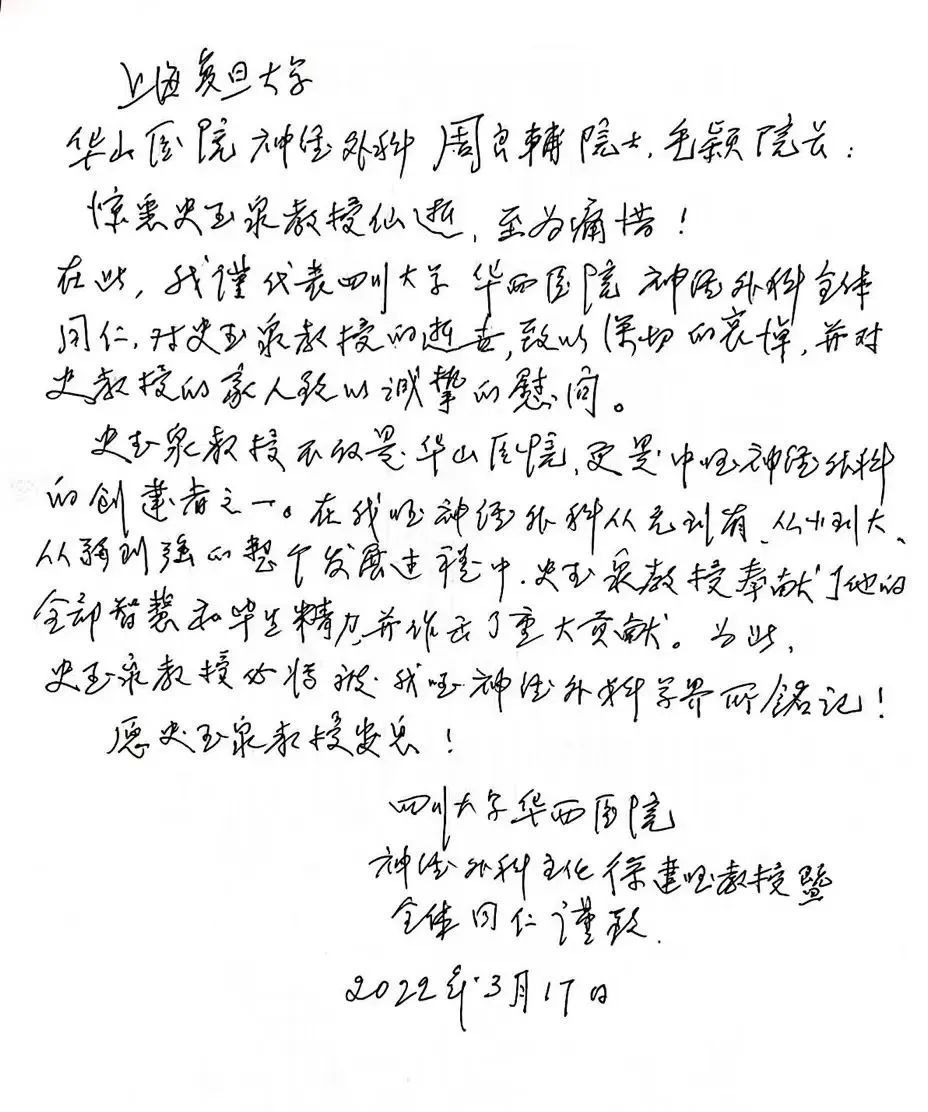 上海复旦大学
华山医院神经外科 周良辅院士,毛颖院长:
惊悉史玉泉教授仙逝,至为痛惜!
在此,我谨代表四川大学华西医院神经外科全体
同仁,对史玉泉教授的逝世,致以深切的哀悼,并对
史教授的家人致以诚挚的慰问。
史玉泉教授不仅是华山医院,更是中国神经外科
的创建者之一。在我国神经外科从无到有、从小到大、
从弱到强的整个发展过程中,史玉泉教授奉献了他的
全部智慧和毕生精力,并作出了重大贡献。为此,
史玉泉教授必将被我国神经外科学界所铭记!
愿史玉泉教授安息!
四川大学华西医院
神经外科主任徐建国教授暨
全体同仁谨致.
2022年3月17日